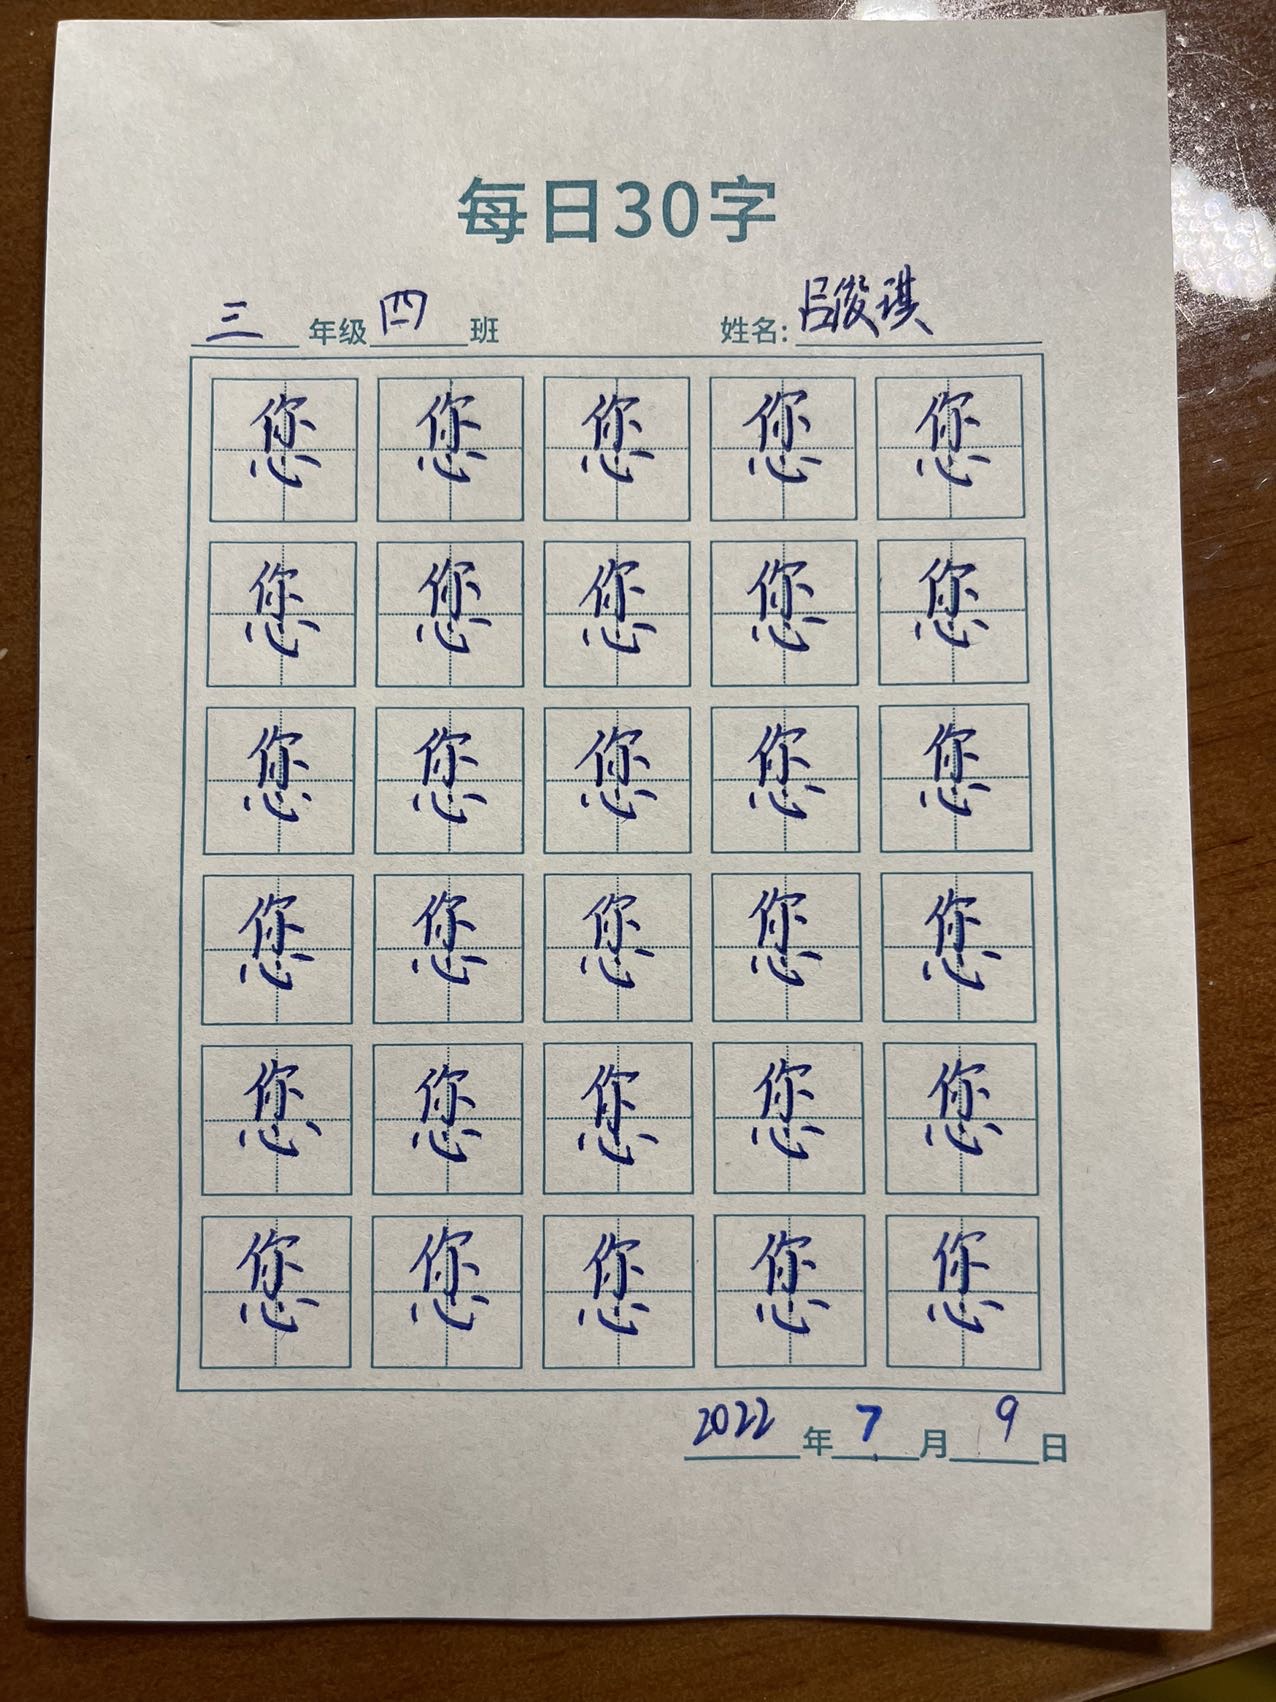 每日30字
三 年级 四 班 姓名: 吕俊琪
您 您 您 您 您
您 您 您 您 您
您 您 您 您 您
您 您 您 您 您
您 您 您 您 您
您 您 您 您 您
2022 年 7 月 9 日